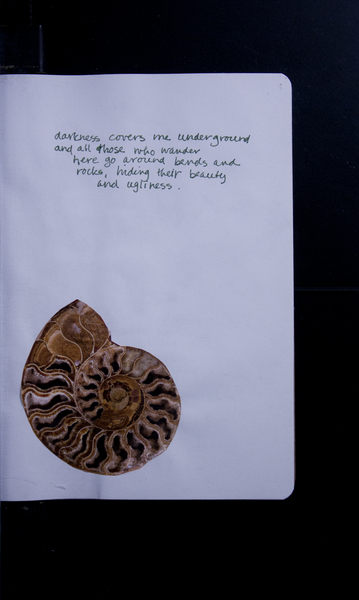 darkness covers me underground
and all those who wander
here go around bends and
rocks, hiding their beauty
and ugliness.